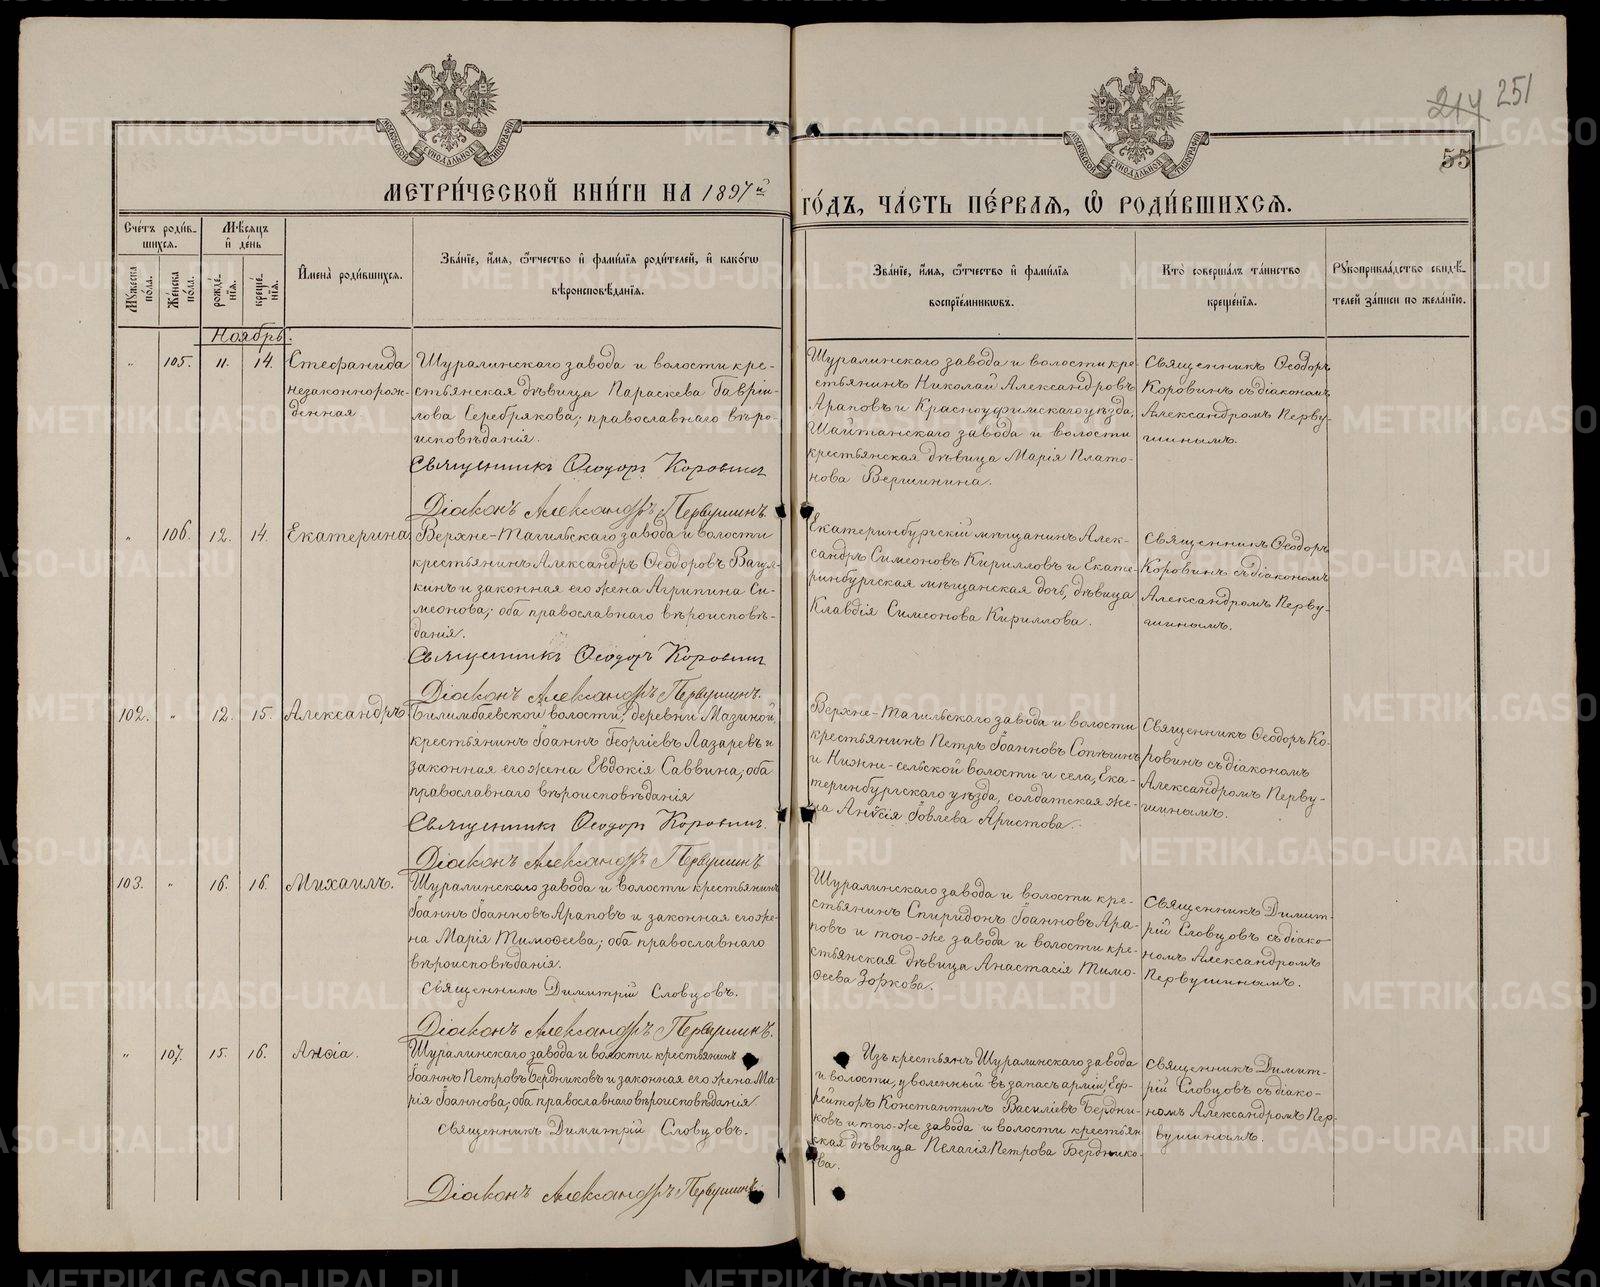 214 251
55
МОСКОВСКОЙ СѴНОДАЛЬНОЙ ТИПОГРАФІИ
МОСКОВСКОЙ СѴНОДАЛЬНОЙ ТИПОГРАФІИ
МЕТРИ́ЧЕСКОЙ КНИ́ГИ НА 1897й ГО́ДЪ, ЧА́СТЬ ПЕ́РВАЯ, Ѡ҆ РОДИ́ВШИХСЯ.
Сче́тъ роди́в-
шихся.
Мꙋжеска по́ла.
Же́нска по́ла.
Мѣ́сяцъ
и҆ де́нь
рожде́-
нїя.
креще́-
нїя.
И҆мена̀ роди́вшихся.
Зва́нїе, и҆́мя, ѻ҆́тчество и҆ фами́лїя роди́телей, и҆ како́гѡ
вѣроисповѣ́данїя.
Зва́нїе, и҆́мя, ѻ҆́тчество и҆ фами́лїя
воспрїе́мникѡвъ.
Кто̀ соверша́лъ та́инство
креще́нїя.
Рꙋкоприкла́дство свидѣ́-
телей за́писи по жела́нїю.
Ноябрь.
„ 105. 11. 14.
Стефанида
незаконнорож-
денная
Шуралинскаго завода и волости кре-
стьянская дѣвица Параскева Гаврiи-
лова Серебрякова; православнаго вѣро-
исповѣданія.
Священникъ Ѳеодоръ Коровинъ
Діаконъ Александръ Первушинъ.
Шуралинскаго завода и волости кре-
стьянинъ Николай Александровъ
Араповъ и Красноуфимскаго уѣзда,
Шайтанскаго завода и волости
крестьянская дѣвица Марія Плато-
нова Вершинина.
Священникъ Ѳеодоръ
Коровинъ съ діакономъ
Александромъ Перву-
шинымъ.
„ 106. 12. 14.
Екатерина
Верхне-Тагильскаго завода и волости
крестьянинъ Александръ Ѳеодоровъ Вагил-
кинъ и законная его жена Агрипина Си-
меонова; оба православнаго вѣроисповѣ-
данія.
Священникъ Ѳеодоръ Коровинъ
Діаконъ Александръ Первушинъ.
Екатеринбургскій мѣщанинъ Алек-
сандръ Симеоновъ Кирилловъ и Екате-
ринбургская мѣщанская дочь, дѣвица
Клавдія Симеонова Кириллова.
Священникъ Ѳеодоръ
Коровинъ съ діакономъ
Александромъ Перву-
шинымъ.
102. „ 12. 15.
Александръ
Билимбаевской волости, деревни Мазиной,
крестьянинъ Іоаннъ Георгіевъ Лазаревъ и
законная его жена Евдокія Саввина; оба
православнаго вѣроисповѣданія
Священникъ Ѳеодоръ Коровинъ.
Діаконъ Александръ Первушинъ
Верхне-Тагильскаго завода и волости
крестьянинъ Петръ Іоанновъ Сопѣшинъ
и Нижне-сельской волости и села, Ека-
теринбургскаго уѣзда, солдатская же-
на Анѵсія Іовлева Аристова.
Священникъ Ѳеодоръ Ко-
ровинъ съ діакономъ
Александромъ Перву-
шинымъ.
103. „ 16. 16.
Михаилъ.
Шуралинскаго завода и волости крестьянинъ
Іоаннъ Іоанновъ Араповъ и законная его же-
на Марія Тимоѳеева; оба православнаго
вѣроисповѣданія.
Священникъ Димитрій Словцовъ.
Діаконъ Александръ Первушинъ.
Шуралинскаго завода и волости кре-
стьянинъ Спиридонъ Іоанновъ Ара-
повъ и того-же завода и волости кре-
стьянская дѣвица Анастасія Тимо-
ѳеева Зоркова.
Священникъ Димит-
рій Словцовъ съ діако-
номъ Александромъ
Первушинымъ.
„ 107. 15. 16.
Шуралинскаго завода и волости крестьянинъ
Іоаннъ Петровъ Бердниковъ и законная его жена Ма-
рія Іоаннова; оба православнаго вѣроисповѣданія
Священникъ Димитрій Словцовъ.
Діаконъ Александръ Первушинъ
Изъ крестьянъ Шуралинскаго завода
и волости, уволенный въ запасъ арміи, Еф-
рейторъ Константинъ Василіевъ Бердни-
ковъ и того-же завода и волости крестьян-
ская дѣвица Пелагія Петрова Бердникo-
ва.
Священникъ Димит-
рій Словцовъ съ діако-
номъ Александромъ Пер-
вушинымъ.
METRIKI.GASO-URAL.RU